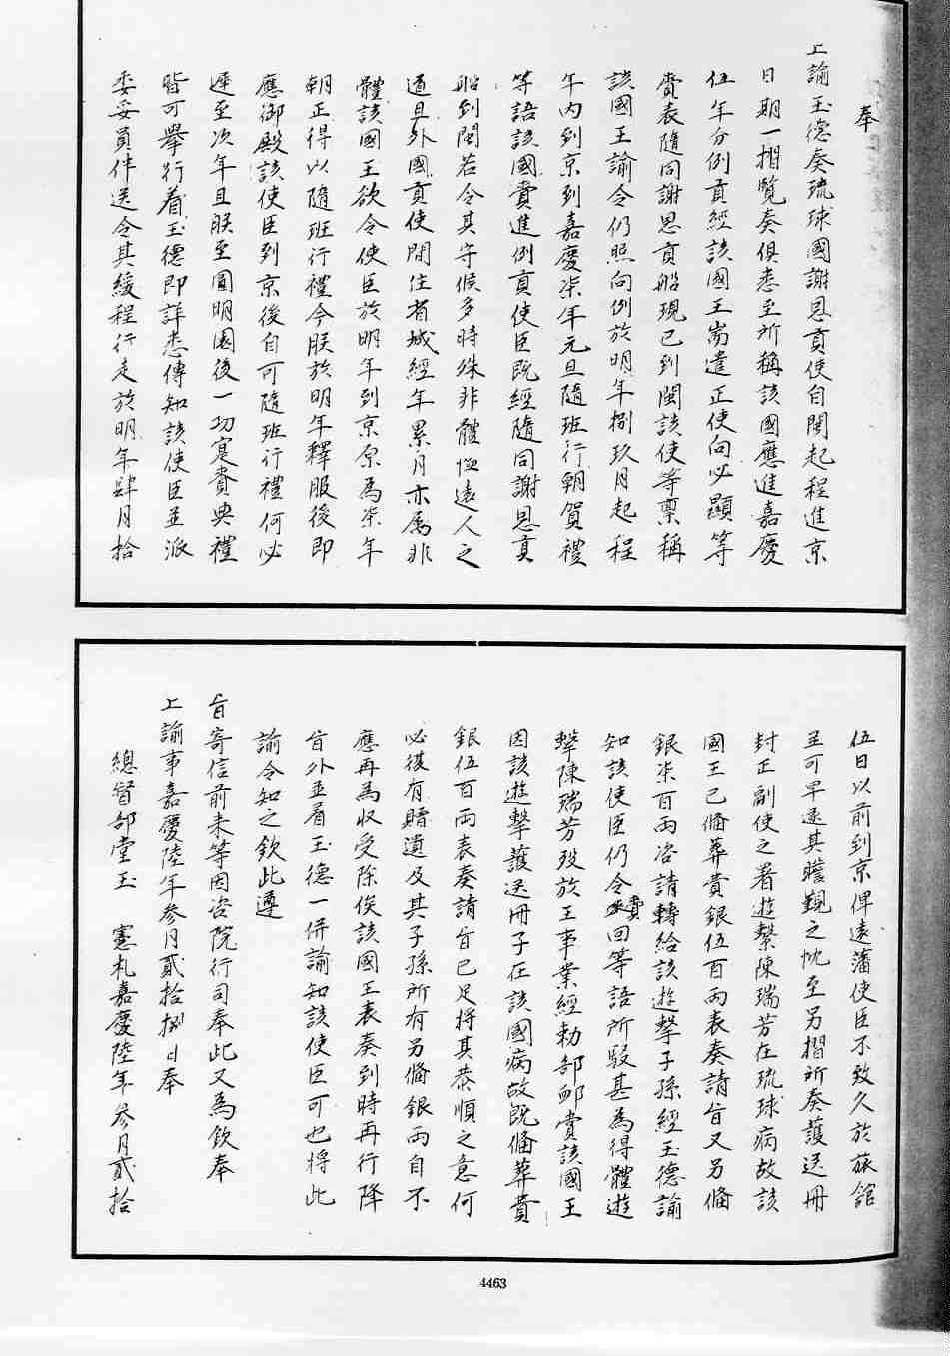 奉
上諭玉德奏琉球國謝恩貢使自閩起程進京
日期一摺覽奏俱悉至所稱該國應進嘉慶
伍年分例貢經該國王耑遣正使向必顯等
賫表隨同謝恩貢船現已到閩該使等稟稱
該國王諭令仍照向例於明年捌玖月起程
年內到京到嘉慶柒年元旦隨班行朝賀禮
等語該國賫進例貢使臣既經隨同謝恩貢
船到閩若令其守候多時殊非體恤遠人之
道且外國貢使閒住省城經年累月亦属非
體該國王欲令使臣於明年到京原為柒年
朝正得以隨班行禮今朕於明年釋服後即
應御殿該使臣到京後自可隨班行禮何必
遲至次年且朕至圓明園後一切宴賚典禮
皆可舉行着玉德即詳悉傳知該使臣並派
委妥員伴送令其緩程行走於明年肆月拾
伍日以前到京俾遠藩使臣不致久於旅舘
並可早遂其瞻覲之忱至另摺所奏護送冊
封正副使之署遊擊陳瑞芳在琉球病故該
國王已備葬費銀伍百両表奏請旨又另備
銀柒百両咨請轉給該遊擊子孫經玉德諭
知該使臣仍令賫回等語所駁甚為得體遊
擊陳瑞芳歿於王事業經勅部卹賞該國王
因該遊擊護送冊子在該國病故既備葬費
銀伍百両表奏請旨已足將其恭順之意何
必復有贈遺及其子孫所有另備銀両自不
應再為收受除俟該國王表奏到時再行降
旨外並着玉德一併諭知該使臣可也將此
諭令知之欽此遵
旨寄信前來等因咨院行司奉此又為欽奉
上諭事嘉慶陸年參月貳拾捌日奉
總督部堂玉　憲札嘉慶陸年參月貳拾
4463